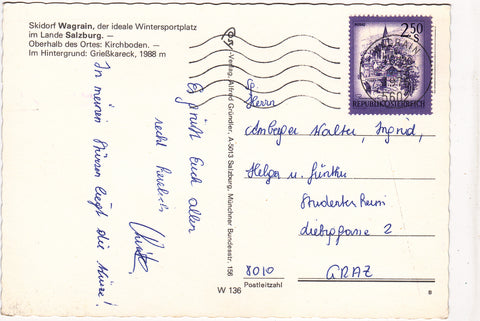 Skidorf Wagrain, der ideale Wintersportplatz
im Lande Salzburg. —
Oberhalb des Ortes: Kirchboden. —
Im Hintergrund: Grießkareck, 1988 m
In meinen
liegt die
Es grüßt Euch allen
recht herzlich
Verlag Alfred Gründler, A-5013 Salzburg, Münchner Bundesstr. 156
2.50
REPUBLIK ÖSTERREICH
WAGRAIN
560
Herrn
Amberger Walter, Ingrid,
Helga u. Günther
Studenter
2
8010 GRAZ
Postleitzahl
W 136
B